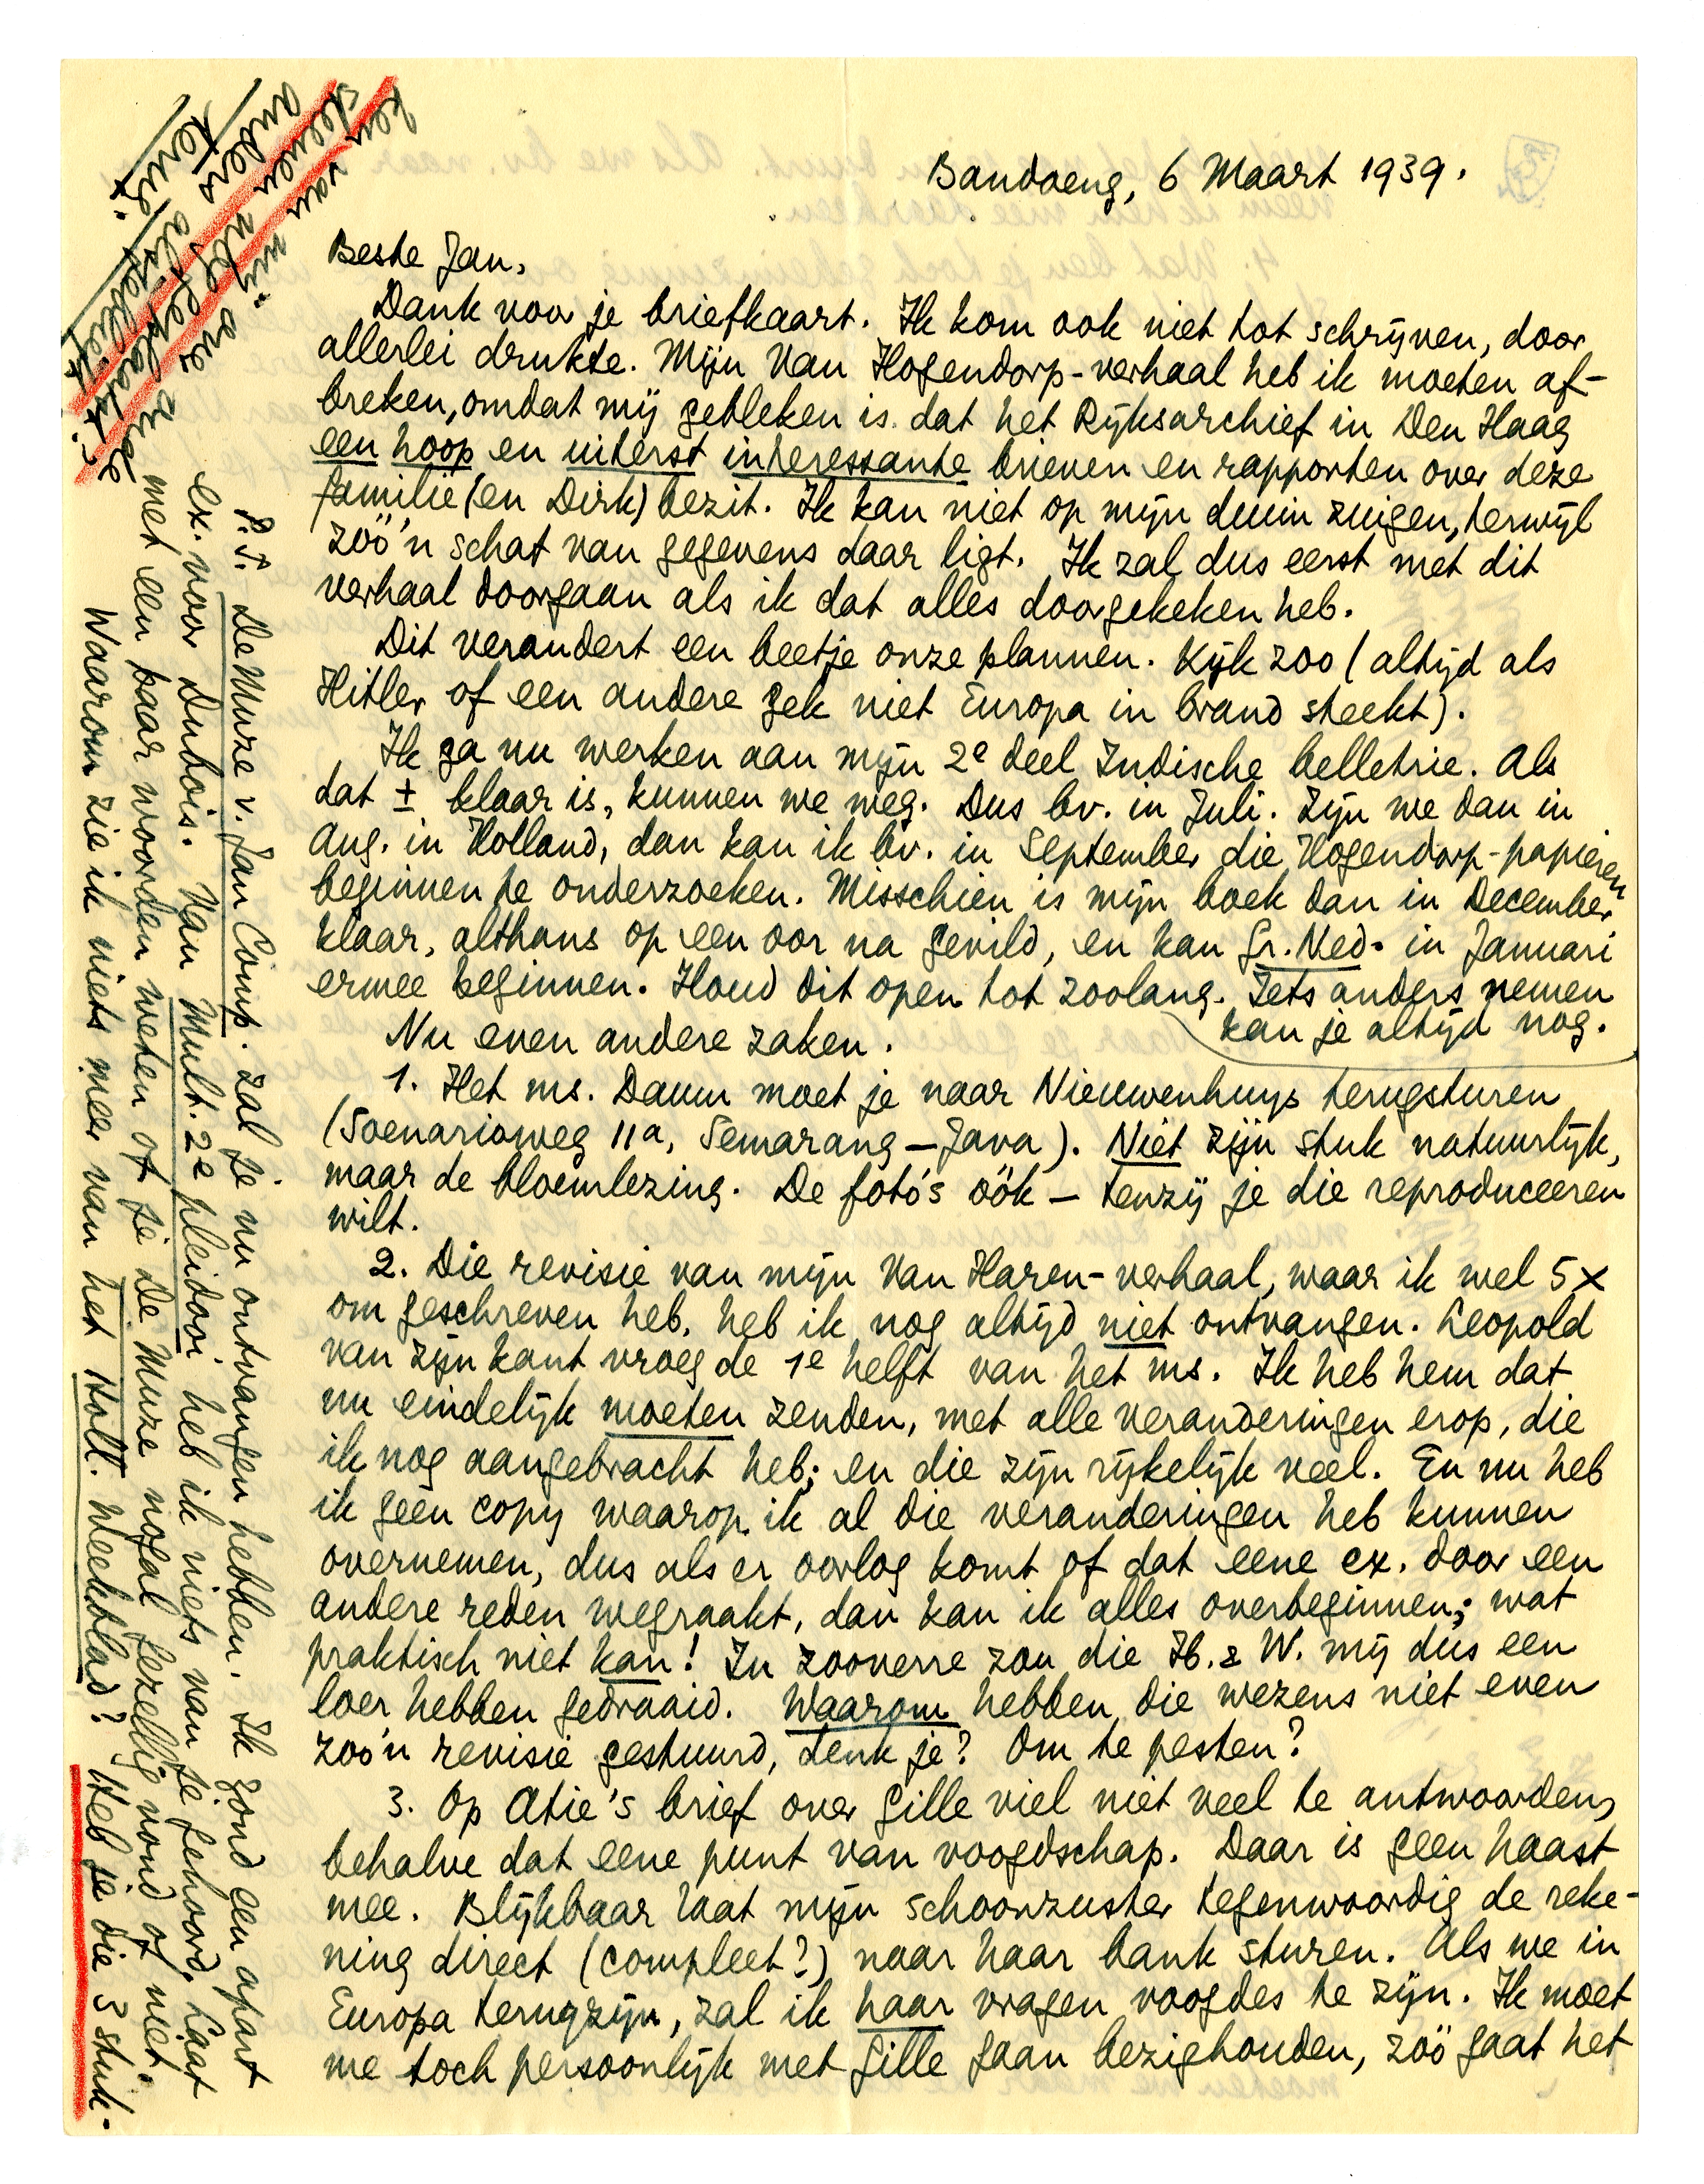 Bandoeng, 6 Maart 1939.
Beste Jan,
Dank voor je briefkaart. Ik kom ook niet tot schrijven, door
allerlei drukte. Mijn Van Hogendorp-verhaal heb ik moeten af-
breken, omdat mij gebleken is dat het Rijksarchief in Den Haag
een hoop en uiterst interessante brieven en rapporten over deze
familie (en Dirk) bezit. Ik kan niet op mijn duim zuigen, terwijl
zóó'n schat van gegevens daar ligt. Ik zal dus eerst met dit
verhaal doorgaan als ik dat alles doorgekeken heb.
Dit verandert een beetje onze plannen. Kijk zoo (altijd als
Hitler of een andere gek niet Europa in brand steekt).
Ik ga nu werken aan mijn 2e deel Indische belletrie. Als
dat ± klaar is, kunnen we weg. Dus bv. in Juli. Zijn we dan in
Aug. in Holland, dan kan ik bv. in September die Hogendorp-papieren
beginnen te onderzoeken. Misschien is mijn boek dan in December
klaar, althans op een oor na gevild, en kan Gr. Ned. in Januari
ermee beginnen. Houd dit open tot zoolang. Iets anders nemen
kan je altijd nog.
Nu even andere zaken.
1. Het ms. Daum moet je naar Nieuwenhuys terugsturen
(Soenarioweg 11a, Semarang – Java). Niet zijn stuk natuurlijk,
maar de bloemlezing. De foto's óók – tenzij je die reproduceeren
wilt.
2. Die revisie van mijn Van Haren-verhaal, waar ik wel 5x
om geschreven heb, heb ik nog altijd niet ontvangen. Leopold
van zijn kant vroeg de 1e helft van het ms. Ik heb hem dat
nu eindelijk moeten zenden, met alle veranderingen erop, die
ik nog aangebracht heb; en die zijn rijkelijk veel. En nu heb
ik géén copy waarop ik al die veranderingen heb kunnen
overnemen, dus als er oorlog komt of dat eene ex. door een
andere reden wegraakt, dan kan ik alles overbeginnen; wat
praktisch niet kan! In zooverre zou die H. & W. mij dus een
loer hebben gedraaid. Waarom hebben die wezens niet even
zoo'n revisie gestuurd, denk je? Om te pesten?
3. Op Atie's brief over Gille viel niet veel te antwoorden,
behalve dat eene punt van voogdschap. Daar is geen haast
mee. Blijkbaar laat mijn schoonzuster tegenwoordig de reke-
ning direct (compleet?) naar haar bank sturen. Als we in
Europa terugzijn, zal ik haar vragen voogdes te zijn. Ik moet
me toch persoonlijk met Gille gaan bezighouden, zóó gaat het
P.S. De Muze v. Jan Comp. zal je nu ontvangen hebben. Ik zond een apart
ex. voor Dubois. Van Mult. 2e pleidooi heb ik niets van je gehoord. Laat
met een paar woorden weten of je De Muze nogal gezellig vond of niet.
Waarom zie ik niets meer van het Holl. Weekblad? Heb je die 3 stuk-
ken van mij over
steeven afgeplaatst?
anders alsjeblieft
terug.